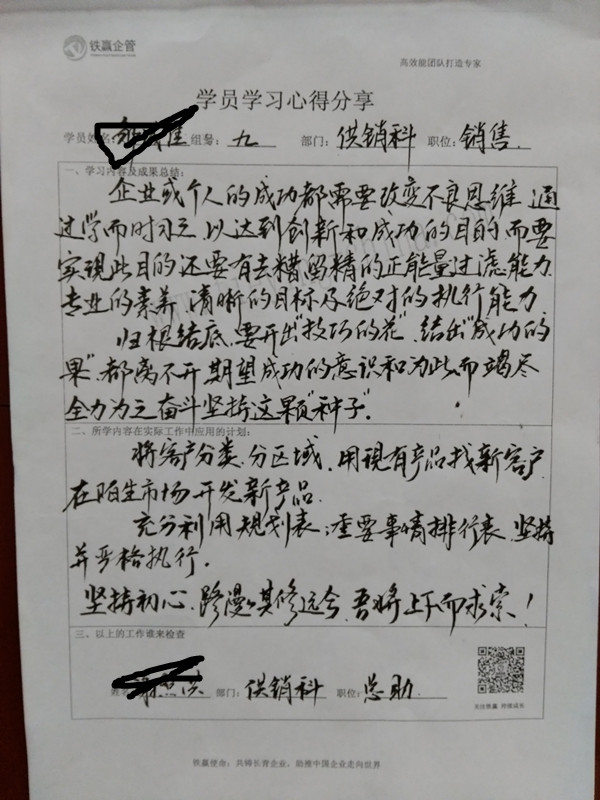 铁赢企管
高效能团队打造专家
学员学习心得分享
学员姓名: 组别: 九 部门: 供销科 职位: 销售.
一、学习内容及成果总结:
企业或个人的成功都需要改变不良思维,通
过学而时习之,以达到创新和成功的目的,而要
实现此目的还要有去糟留精的正能量过滤能力.
专业的素养,清晰的目标及绝对的执行能力
归根结底,要开出"技巧的花",结出"成功的
果",都离不开期望成功的意识和为此而竭尽
全力为之奋斗坚持这颗"种子".
二、所学内容在实际工作中应用的计划:
将客户分类,分区域,用现有产品找新客户
在陌生市场开发新产品.
充分利用规划表:重要事情排行表,坚持
并严格执行.
坚持初心,路漫漫其修远兮,吾将上下而求索!
三、以上的工作谁来检查
姓名: 部门: 供销科 职位: 总助.
关注铁赢 持续成长
铁赢使命:共铸长青企业,助推中国企业走向世界